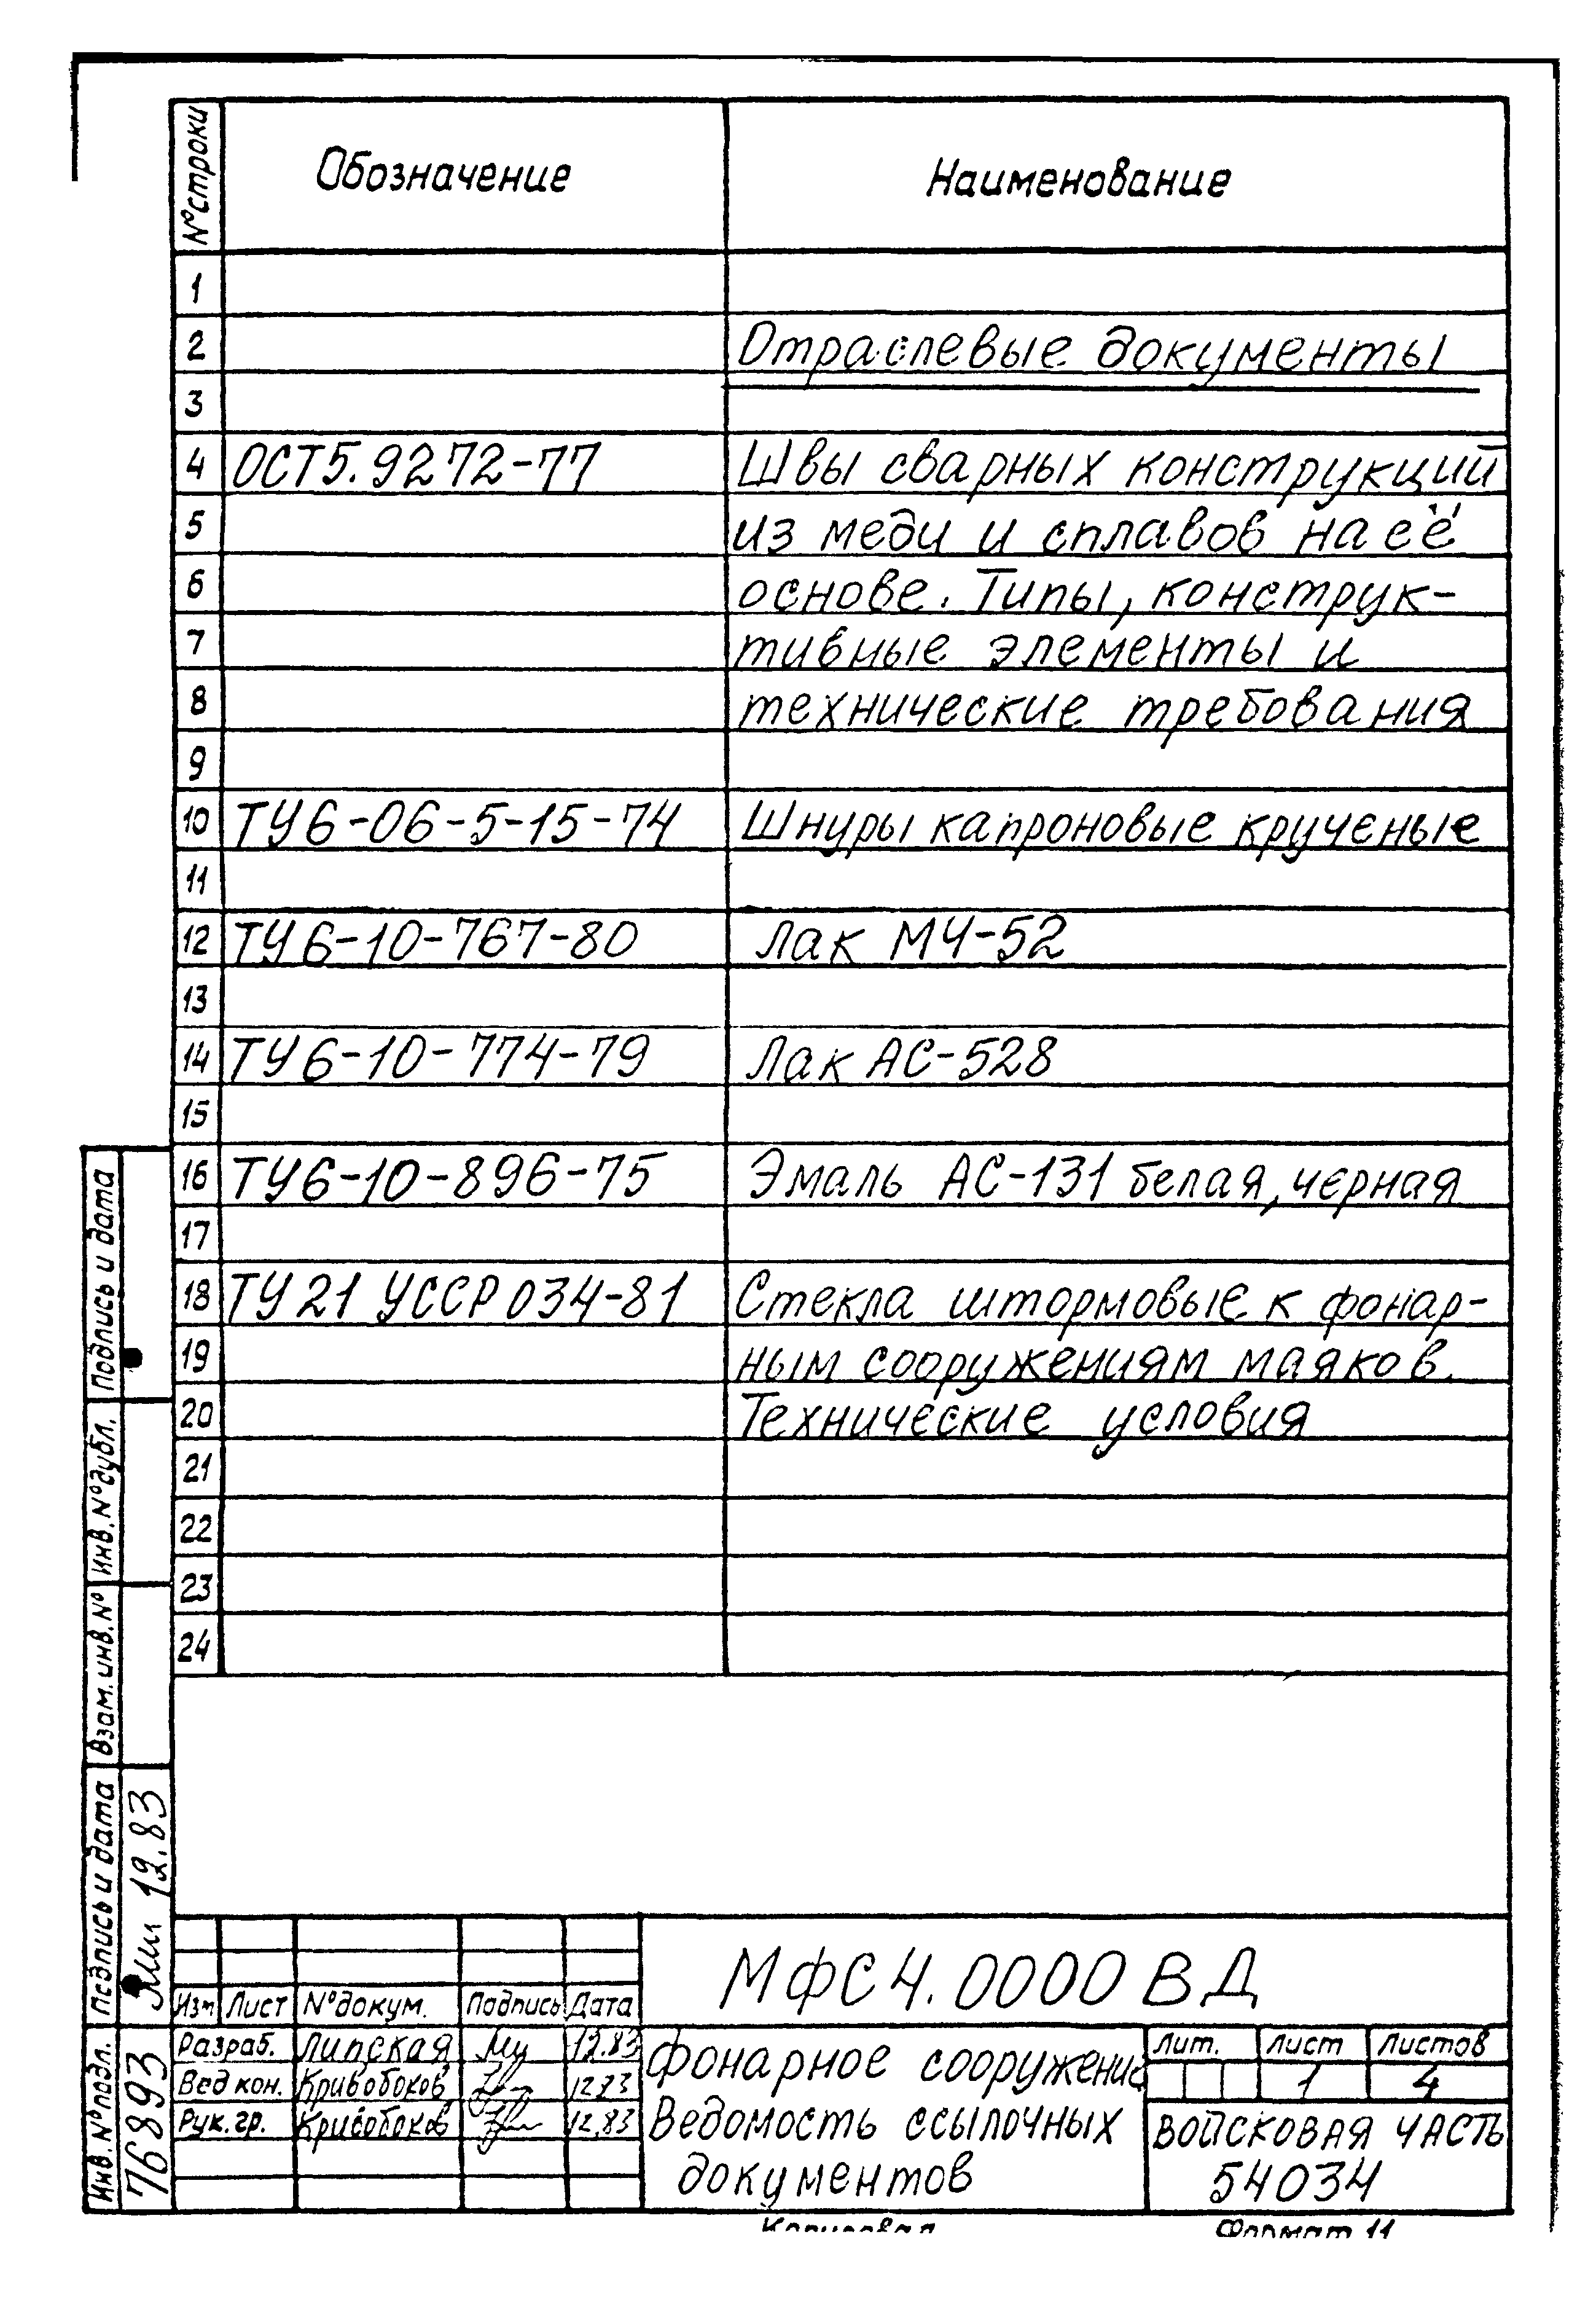 № строки Обозначение Наименование
1
2 Отраслевые документы
3
4 ОСТ5.9272-77 Швы сварных конструкций
5 из меди и сплавов на её
6 основе. Типы, конструк-
7 тивные элементы и
8 технические требования
9
10 ТУ6-06-5-15-74 Шнуры капроновые крученые
11
12 ТУ6-10-767-80 Лак МЧ-52
13
14 ТУ6-10-774-79 Лак АС-528
15
16 ТУ6-10-896-75 Эмаль АС-131 белая, черная
17
18 ТУ21 УССР 034-81 Стекла штормовые к фонар-
19 ным сооружениям маяков.
20 Технические условия
21
22
23
24
Подпись и дата
Инв. № дубл.
Взам. инв. №
Подпись и дата 12.83
Инв. № подл. 76893
МФС4.0000 ВД
Изм Лист № докум. Подпись Дата
Разраб. Липская 12.83
Вед кон. Кривобоков 12.83
Рук. гр. Кривобоков 12.83
Фонарное сооружение
Ведомость ссылочных
документов
Лит. Лист Листов
1 4
ВОЙСКОВАЯ ЧАСТЬ
54034
Копировал Формат 11